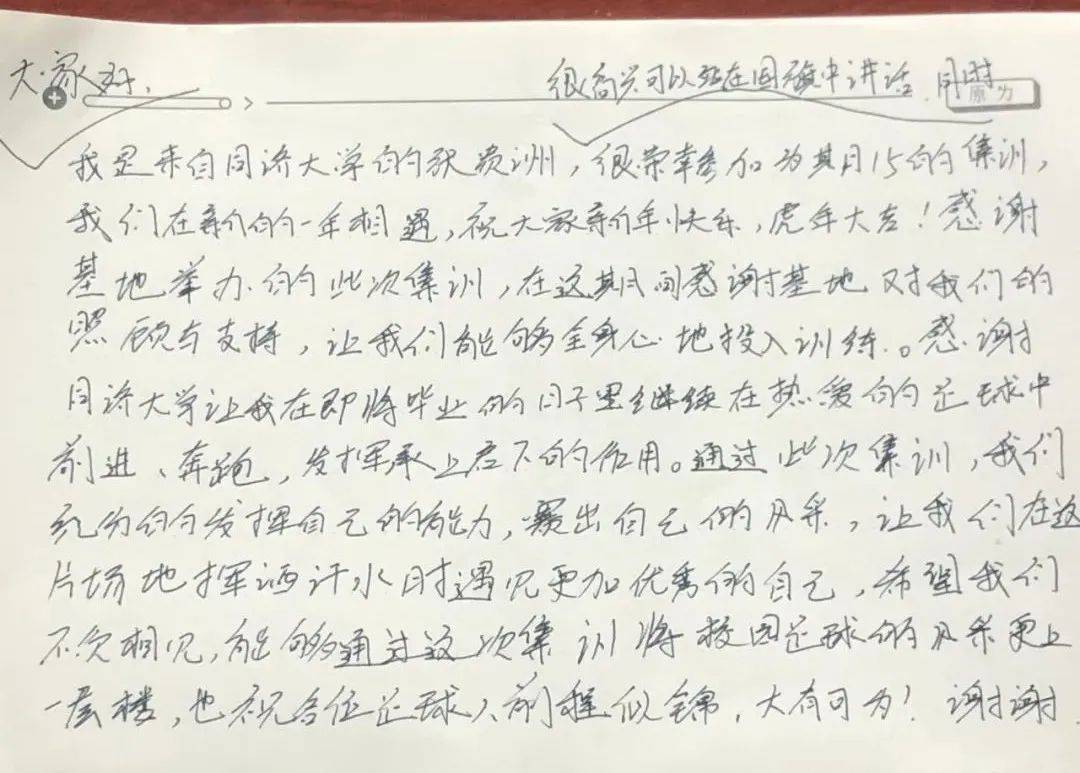 大家好，
很高兴可以站在国旗中讲话，同时
原力
我是来自同济大学的张贵洲，很荣幸参加为期15的集训，
我们在新的一年相遇，祝大家新年快乐，虎年大吉！感谢
基地举办的此次集训，在这期间感谢基地对我们的
照顾与支持，让我们能够全身心地投入训练。感谢
同济大学让我在即将毕业的日子里继续在热爱的足球中
前进、奔跑，发挥承上启下的作用。通过此次集训，我们
充分的发挥自己的能力，赛出自己的风采，让我们在这
片场地挥洒汗水时遇见更加优秀的自己，希望我们
不负相见，能够通过这次集训将校园足球的风采更上
一层楼，也祝各位足球人前程似锦，大有可为！谢谢